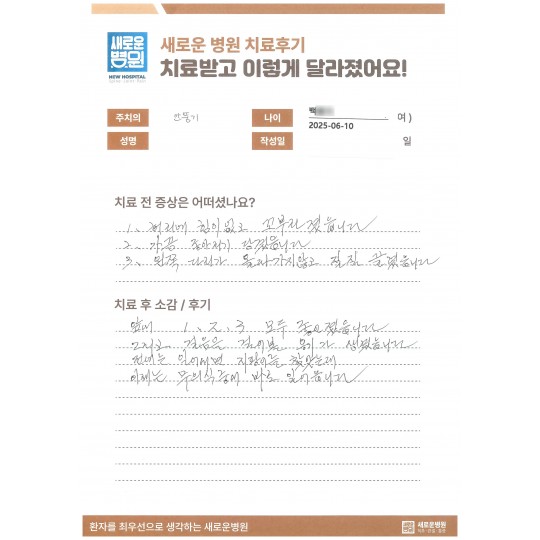 새로운
병원
NEW HOSPITAL
새로운 병원 치료후기
치료받고 이렇게 달라졌어요!
주치의 안풍기 나이 백 여 )
2025-06-10
성명 작성일 일
치료 전 증상은 어떠셨나요?
1. 허리에 힘이 없고 꼬부라졌습니다
2. 가끔 주저앉기 잘했습니다
3. 왼쪽 다리가 올라가지 않고 질질 끌렸습니다
치료 후 소감 / 후기
앞에 1, 2, 3 모두 좋아졌습니다
걸음을 걸어볼 용기가 생겼습니다
전에는 일어서면 지팡이를 찾았는데
이제는 무의식중에 바로 일어섭니다
환자를 최우선으로 생각하는 새로운병원
새로운병원